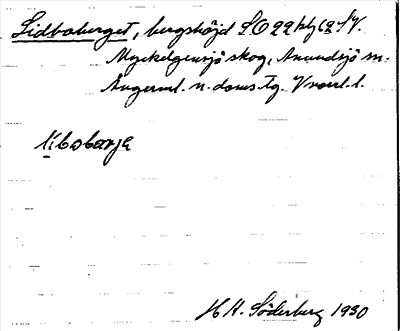 Lidboberget, bergshöjd SO 22
Myckelgensjö skog, Anundsjö sn.
Ångerml. n. doms. tg. Vnorrl. l.
libobarja
H H. Söderberg 1930